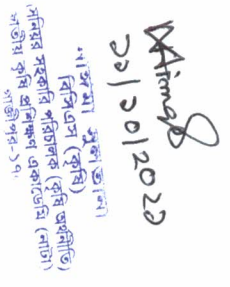 ১১/১০/২০২১
নাজমা সুলতানা
বিসিএস (কৃষি)
সিনিয়র সহকারি পরিচালক (কৃষি অর্থনীতি)
জাতীয় কৃষি প্রশিক্ষণ একাডেমি (নাটা)
গাজীপুর-১৭